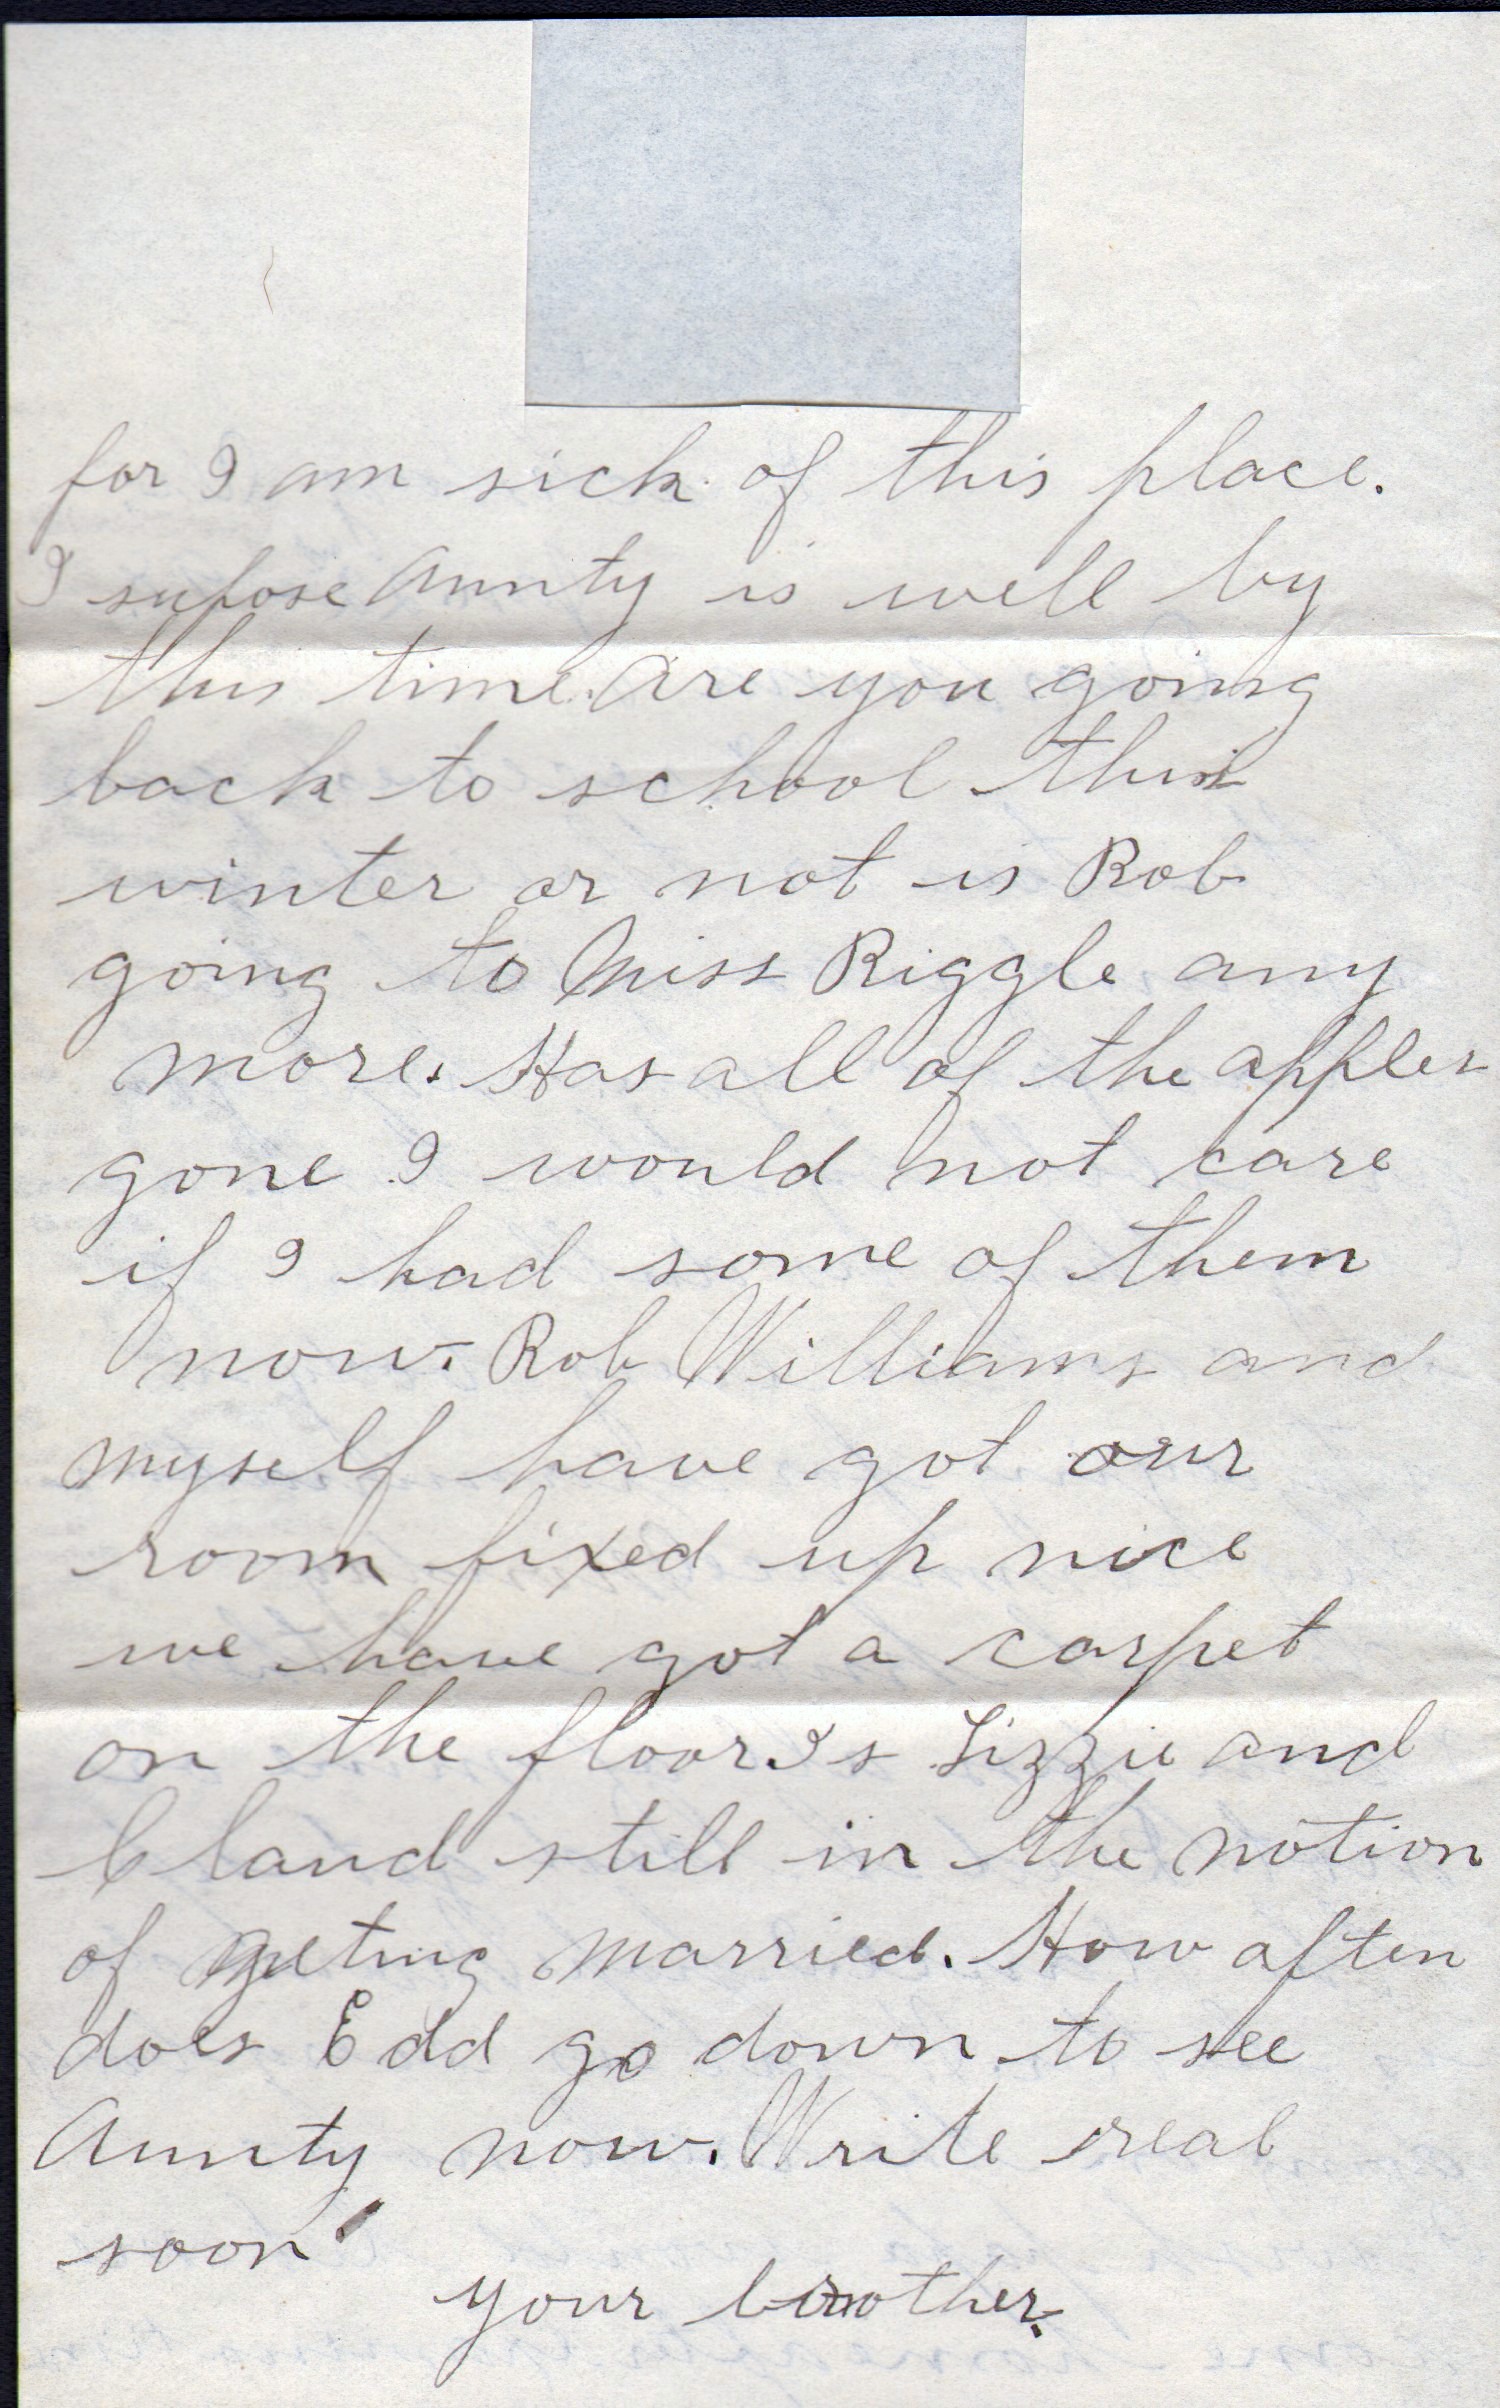 for I am sick of this place.
I supose Aunty is well by
this time. Are you going
back to school this
winter or not is Rob
going to Miss Riggle any
more. Has all of the apples
gone I would not care
if I had some of them
now. Rob Williams and
myself have got our
room fixed up nice
we have got a carpet
on the floor. Is Lizzie and
Cland still in the notion
of geting married. How often
does Edd go down to see
Aunty now. Write real
soon
your brother.